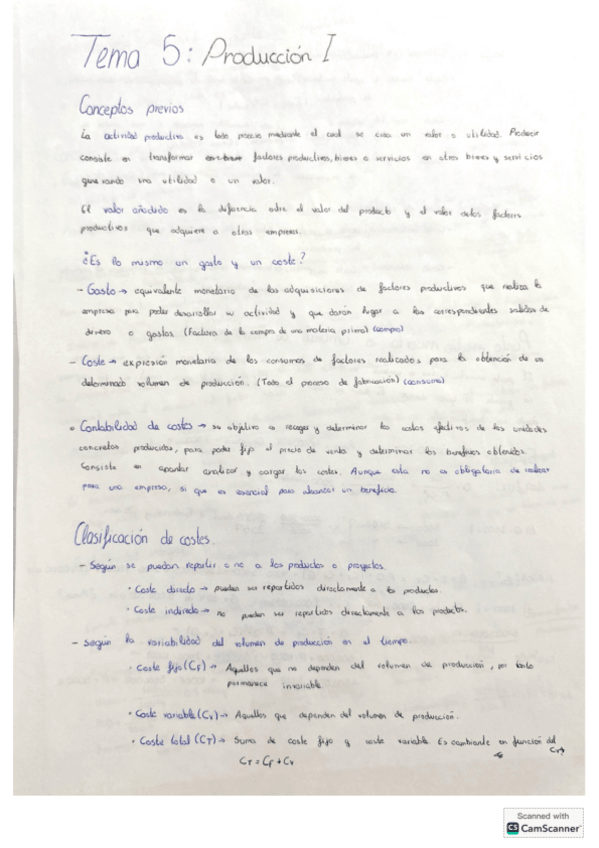 Tema 5: Producción I
Conceptos previos
La actividad productiva es todo proceso mediante el cual se crea un valor o utilidad. Producir
consiste en transformar factores productivos, bienes o servicios en otros bienes y servicios
generando una utilidad o un valor.
El valor añadido es la diferencia entre el valor del producto y el valor de los factores
productivos que adquiere a otras empresas.
¿Es lo mismo un gasto y un coste?
- Gasto → equivalente monetario de las adquisiciones de factores productivos que realiza la
empresa para poder desarrollar su actividad y que darán lugar a las correspondientes salidas de
dinero o gastos. (Factura de la compra de una materia prima) (compra)
- Coste → expresión monetaria de los consumos de factores realizados para la obtención de un
determinado volumen de producción. (Todo el proceso de fabricación) (consumo)
• Contabilidad de costes → su objetivo es recoger y determinar los costes efectivos de las unidades
concretas producidas, para poder fijar el precio de venta y determinar los beneficios obtenidos.
Consiste en apuntar analizar y cargar los costes. Aunque esta no es obligatoria de realizar
para una empresa, si que es esencial para alcanzar un beneficio.
Clasificación de costes.
- Según se puedan repartir o no a los productos o proyectos.
• Coste directo → pueden ser repartidos directamente a los productos.
• Coste indirecto → no pueden ser repartidos directamente a los productos.
- Según la variabilidad del volumen de producción en el tiempo.
• Coste fijo (CF) → Aquellos que no dependen del volumen de producción, por tanto
permanece invariable.
• Coste variable (Cv) → Aquellos que dependen del volumen de producción.
• Coste total (CT) → Suma de coste fijo y coste variable. Es cambiante en función del
CT = CF + Cv
Scanned with
CS CamScanner